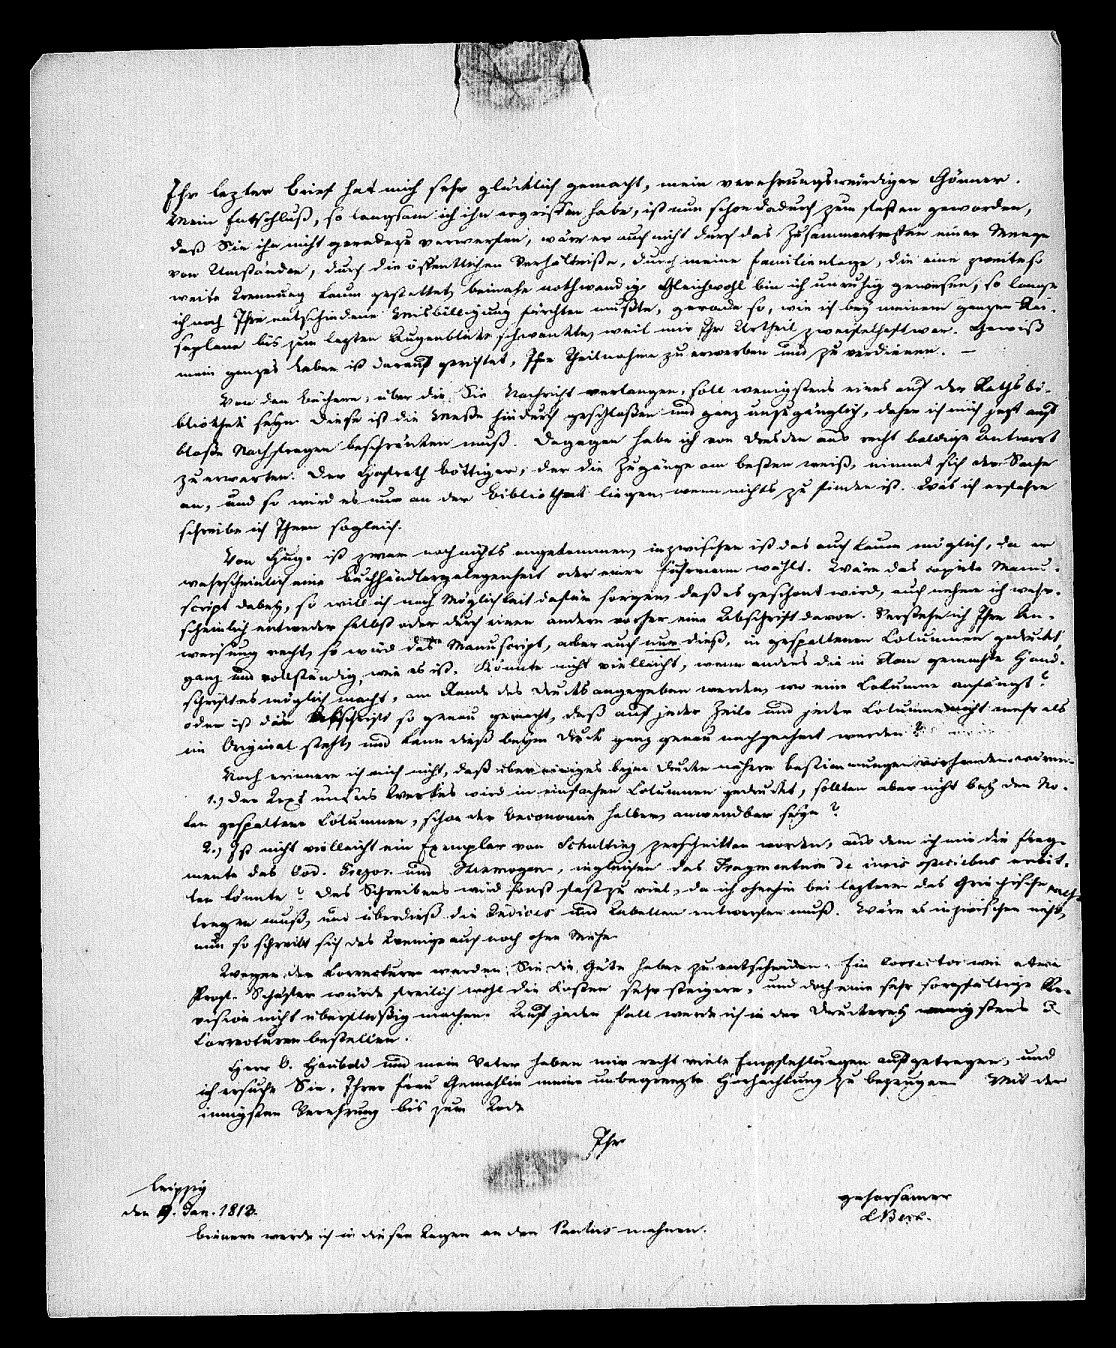 Ihr lezter Brief hat mich sehr glücklich gemacht, mein verehrungswürdiger Gönner.
Mein Entschluß, so langsam ich ihn ergriffen habe, ist nun schon dadurch zum festen geworden,
daß Sie ihn nicht geradezu verwerfen, wäre er auch nicht durch das Zusammentreffen einer Menge
von Umständen, durch die öffentlichen Verhältniße, durch meine Familienlage, die eine zweite so
weite Trennung kaum gestattet, beinahe nothwendig. Gleichwohl bin ich unruhig gewesen, so lange
ich noch Ihre entschiedene Misbilligung fürchten mußte, gerade so, wie ich bey meinem ganzen Rei-
seplane bis zum lezten Augenblicke schwankte, weil mir Ihr Urtheil zweifelhaft war. Gewiß
mein ganzes Leben ist darauf gerichtet, Ihre Theilnahme zu erwerben und zu verdienen. —
Von den Büchern, über die Sie Nachricht verlangen, soll wenigstens eines auf der Rathsbi-
bliothek seyn. Diese ist die Meße hindurch geschloßen und ganz unzugänglich, daher ich mich jezt auf
bloße Nachfragen beschränken muß. Dagegen habe ich von Dresden aus recht baldige Antwort
zu erwarten. Der Hofrath Böttiger, der die Zugänge am besten weiß, nimmt sich der Sache
an, und so wird es nur an der Bibliothek liegen, wenn nichts zu finden ist. Was ich erfahre
schreibe ich Ihnen sogleich.
Von Hugo ist zwar noch nichts angekommen, inzwischen ist das auch kaum möglich, da er
wahrscheinlich eine Buchhändlergelegenheit oder einen Fuhrmann wählt. Wäre das copirte Manu-
script dabey, so will ich nach Möglichkeit dafür sorgen, daß es geschont wird, auch nehme ich wahr-
scheinlich entweder selbst oder durch einen andern vorher eine Abschrift davon. Verstehe ich Ihre An-
weisung recht, so wird das Manuscript, aber auch nur dieß, in gespaltenen Columnen gedrukt,
ganz und vollständig, wie es ist. Könnte nicht vielleicht, wenn anders die in Rom gemachte Hand-
schrift es möglich macht, am Rande des Druks angegeben werden, wo eine Columne anfängt?
oder ist die Abschrift so genau gemacht, daß auf jeder Zeile und jeder Columne nicht mehr als
im Original steht, und kann dieß beym Druck ganz genau nachgeahmt werden?
Noch erinnere ich mich nicht, daß über einiges beym Drucke nähere Bestimmungen vorhanden wären:
1.) Der Text unsers Werkes wird in einfachen Columnen gedrukt, sollten aber nicht bey den No-
ten gespaltene Columnen, schon der Oeconomie halber, anwendbar seyn?
2.) Ist nicht vielleicht ein Exemplar von Schulting zerschnitten worden, aus dem ich mir die Frag-
mente des Cod. Gregor. und Hermogen., ingleichen das Fragmentum de iuris speciebus erbit-
ten könnte? Des Schreibens wird sonst fast zu viel, da ich ohnehin bei lezterem das Griechische
tragen muß, und überdieß die Indices und Tabellen entwerfen muß. Wäre es inzwischen nicht,
nun so schreibt sich das Wenige auch noch ohne Mühe.
Wegen der Correcturen werden Sie die Güte haben zu entscheiden. Ein Corrector wie etwa
Prof. Schäfer würde freilich wohl die Kosten sehr steigern, und doch eine sehr sorgfältige Re-
vision nicht überflüßig machen. Auf jeden Fall werde ich in der Druckerey wenigstens 2
Correcturen bestellen.
Herr D. Haubold und mein Vater haben mir recht viele Empfehlungen aufgetragen, und
ich ersuche Sie, Ihrer Frau Gemahlin meine unbegrenzte Hochachtung zu bezeugen. Mit der
innigsten Verehrung bis zum Tode
Ihr
Leipzig
den 9. Jan. 1813.
gehorsamer
CBeck.
werde ich in diesen Tagen an den mahnen.